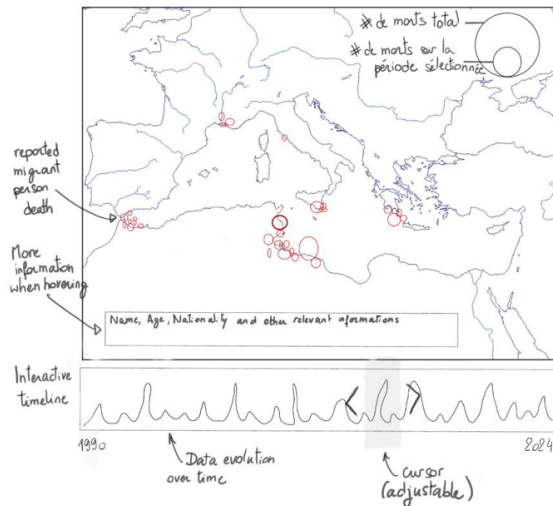 # de morts total
# de morts sur la
période sélectionnée
reported
migrant
person
death
More
information
when hovering
Name, Age, Nationality and other relevant informations
Interactive
timeline
1990
2024
Data evolution
over time
cursor
(adjustable)